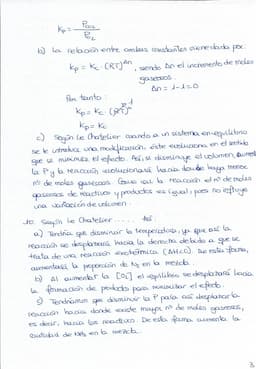 Kp = Pco₂ / Po₂
b) La relación entre ambas constantes viene dada por:
Kp = Kc · (RT)^Δn, siendo Δn el incremento de moles
gaseosos.
Δn = 1-1 = 0
Por tanto:
Kp = Kc · (RT)⁰
Kp = Kc
c) Según Le Chatelier cuando a un sistema en equilibrio
se le introduce una modificación, éste evoluciona en el sentido
que se minimiza el efecto. Así, si disminuye el volumen, aumenta
la P y la reacción evolucionará hacia donde haya menor
nº de moles gaseosos. Como en la reacción el nº de moles
gaseosos de reactivos y productos es igual, pues no influye
una variación de volumen.
10. Según Le Chatelier ..... Así:
a) Tendría que disminuir la temperatura, ya que así la
reacción se desplazará hacia la derecha debido a que se
trata de una reacción exotérmica (ΔH<0). De esta forma,
aumentará la proporción de N₂ en la mezcla.
b) Al aumentar la [O₂] el equilibrio se desplazará hacia
la formación de producto para minimizar el efecto.
c) Tendríamos que disminuir la P para así desplazar la
reacción hacia donde existe mayor nº de moles gaseosos,
es decir, hacia los reactivos. De esta forma aumenta la
cantidad de NH₃ en la mezcla.
3